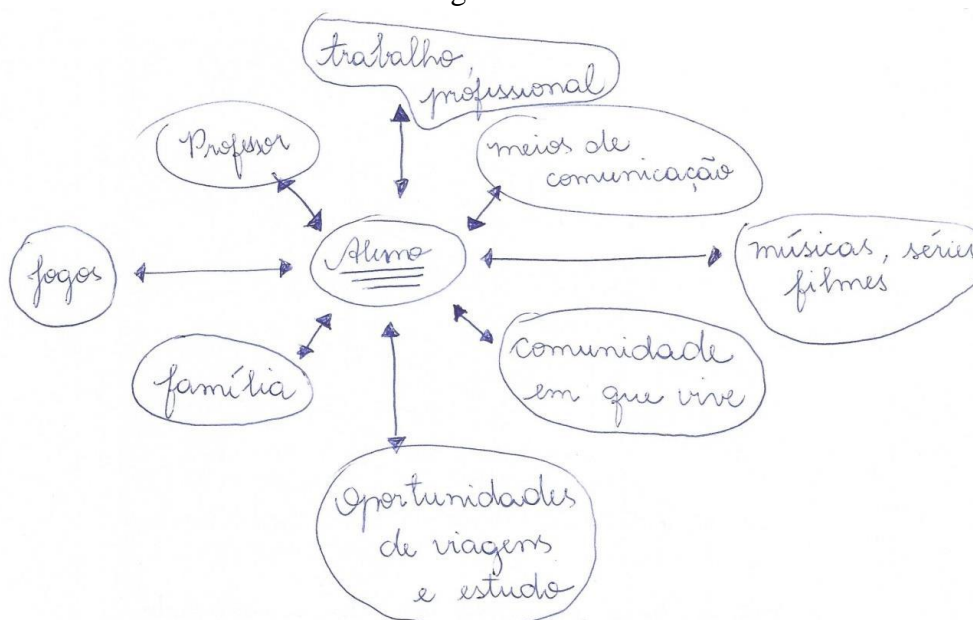 trabalho,
profissional
Professor
meios de
comunicação
Aluno
jogos
músicas, séries
filmes
família
comunidade
em que vive
Oportunidades
de viagens
e estudo